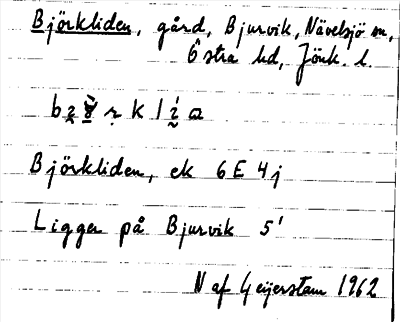 Björkliden, gård, Bjurvik, Nävelsjö sn,
Östra hd, Jönk. l.
Björkliden, ek 6E 4j
Ligger på Bjurvik 5'
N af Geijerstam 1962